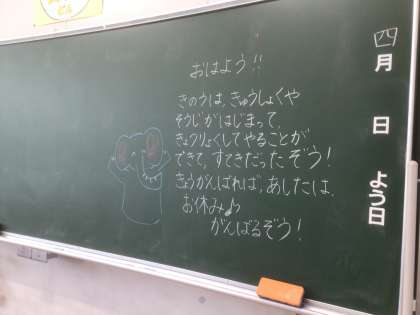 おはよう!!
きのうは、きゅうしょくや
そうじがはじまって、
きょうりょくしてやることが
できて、すてきだったぞう!
きょうがんばれば、あしたは、
お休み♪
がんばるぞう!
四
月
日
よう日